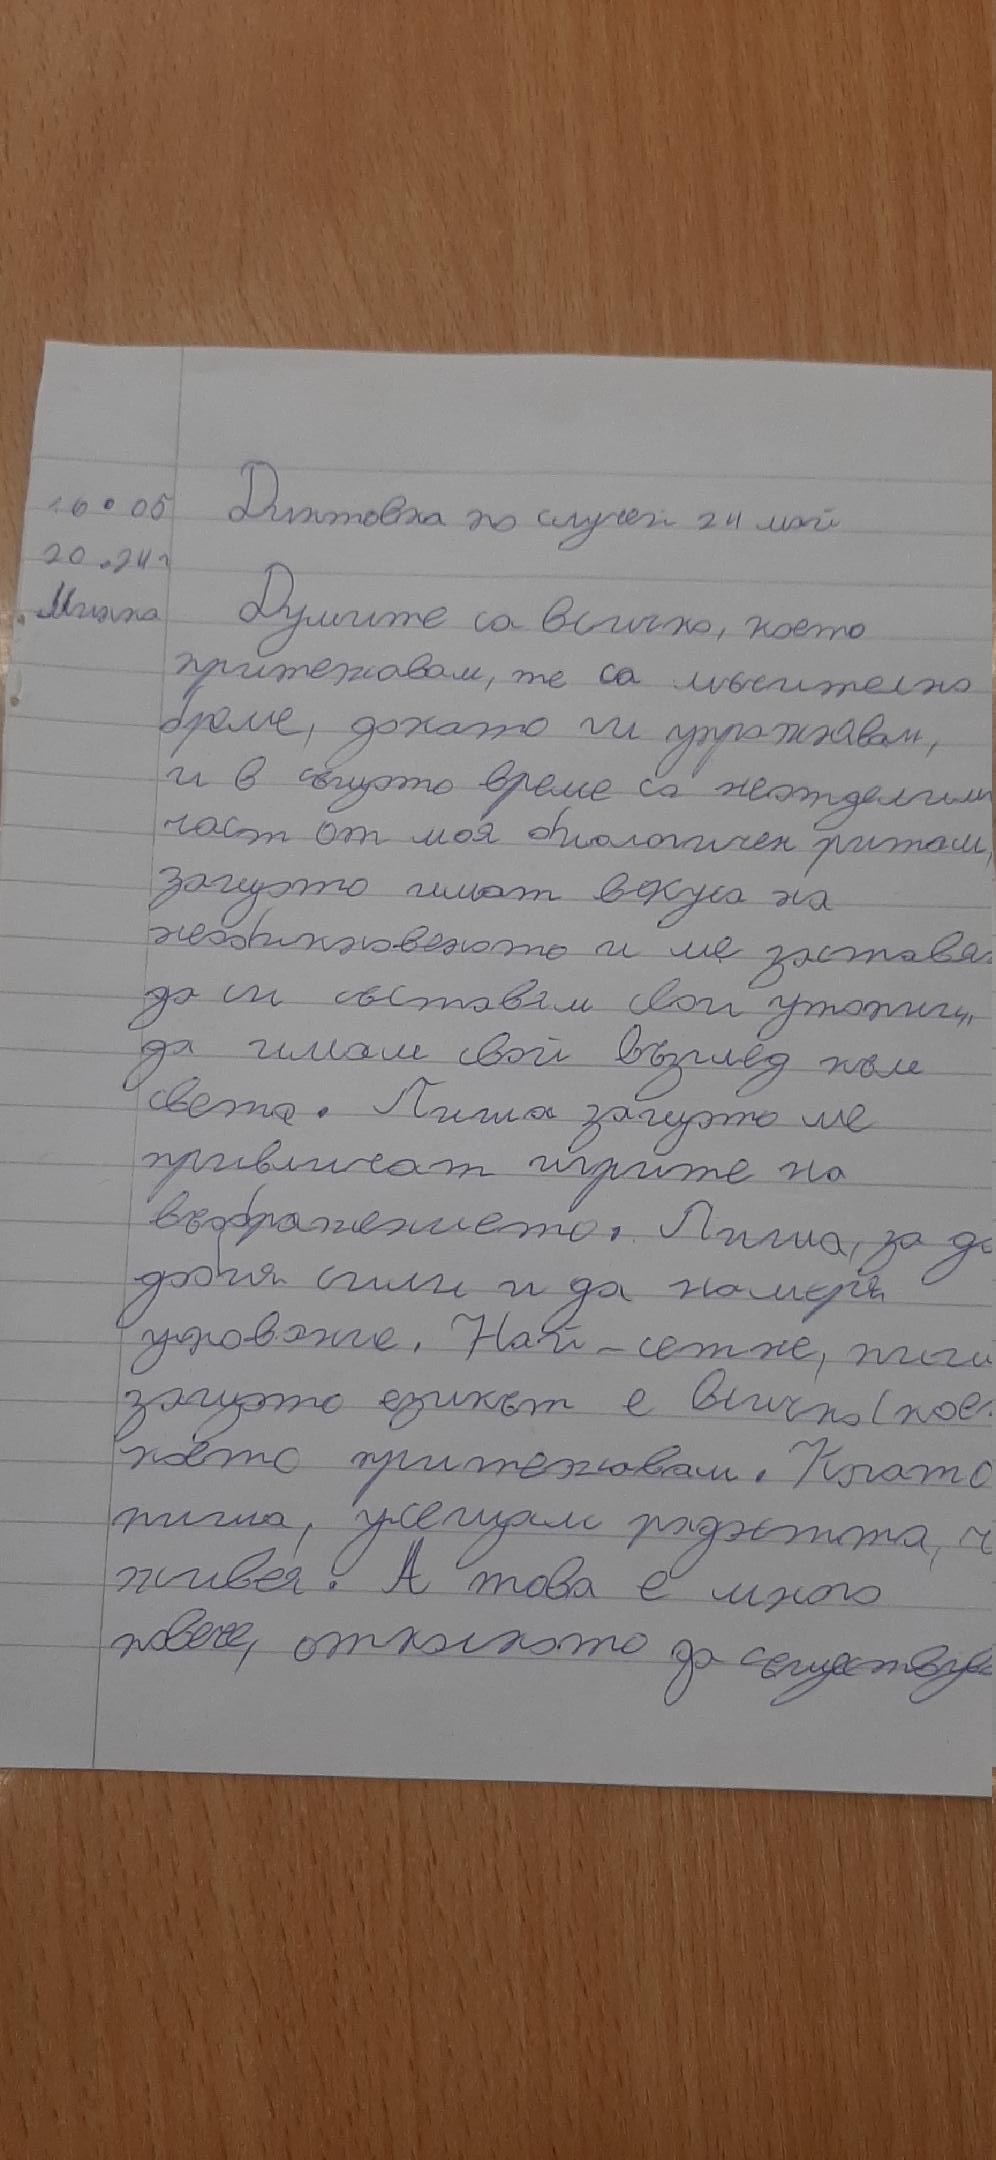 16.05
Диктовка по случей 24 май
20.24г
Минна
Думите са всичко, което
притежавам, те са мъчително
бреме, докато ги упражнявам,
и в същото време са неотделими
част от моя биологичен ритъм,
защото имат вкуса на
необикновеното и ме заставя
да си съставям свои утопии,
да имам свой възглед към
света. Пиша защото ме
привличат игрите на
въображението. Пиша, за да
добия сили и да намеря
упование. Най-сетне,
защото езикът е всичко
което притежавам. Когато
пиша, усещам радостта,
живея. А това е много
повече, отколкото да